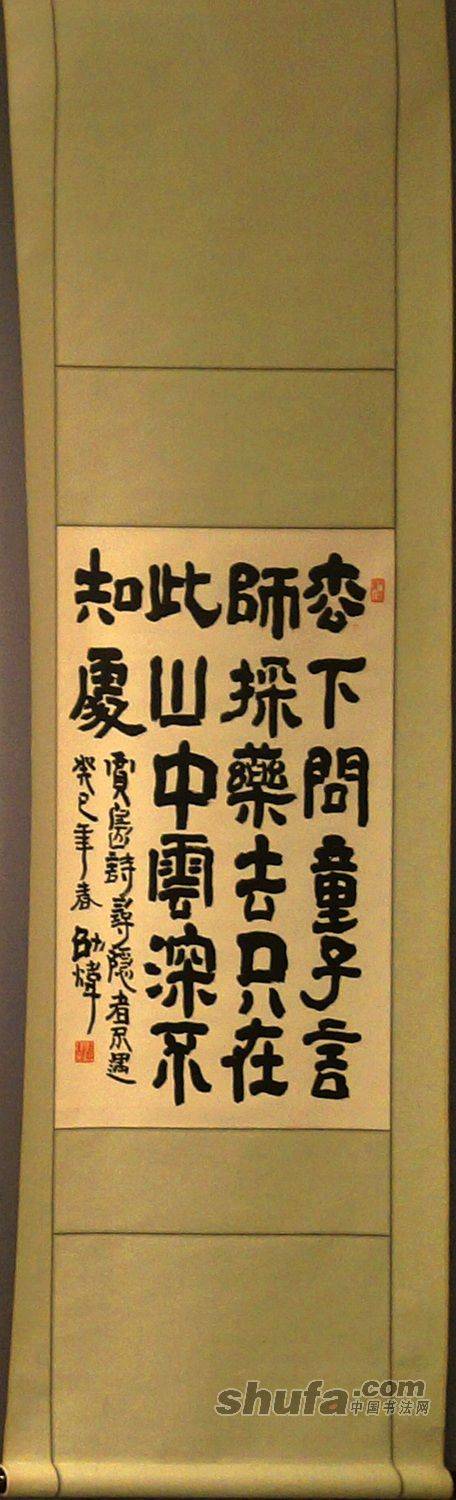 枩下問童子言
師採藥去只在
此山中雲深不
知處
賈島詩尋隱者不遇
癸巳年春 劭煒
shufa.com
中国书法网